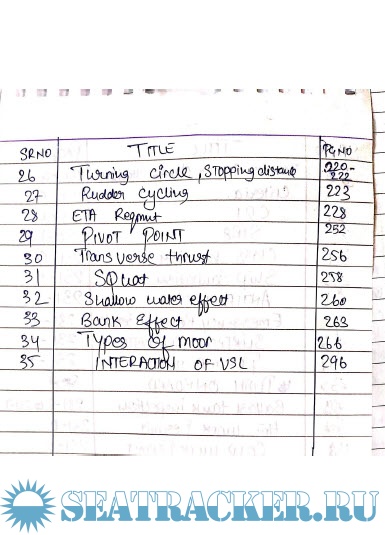 SRNO TITLE PG NO
26 Turning circle, Stopping distance 220-222
27 Rudder cycling 223
28 ETA Reqmnt 228
29 PIVOT POINT 252
30 Transverse thrust 256
31 SQuat 258
32 Shallow water effect 260
33 Bank Effect 263
34 Types of moor 266
35 INTERACTION OF VSL 296
SEATRACKER.RU